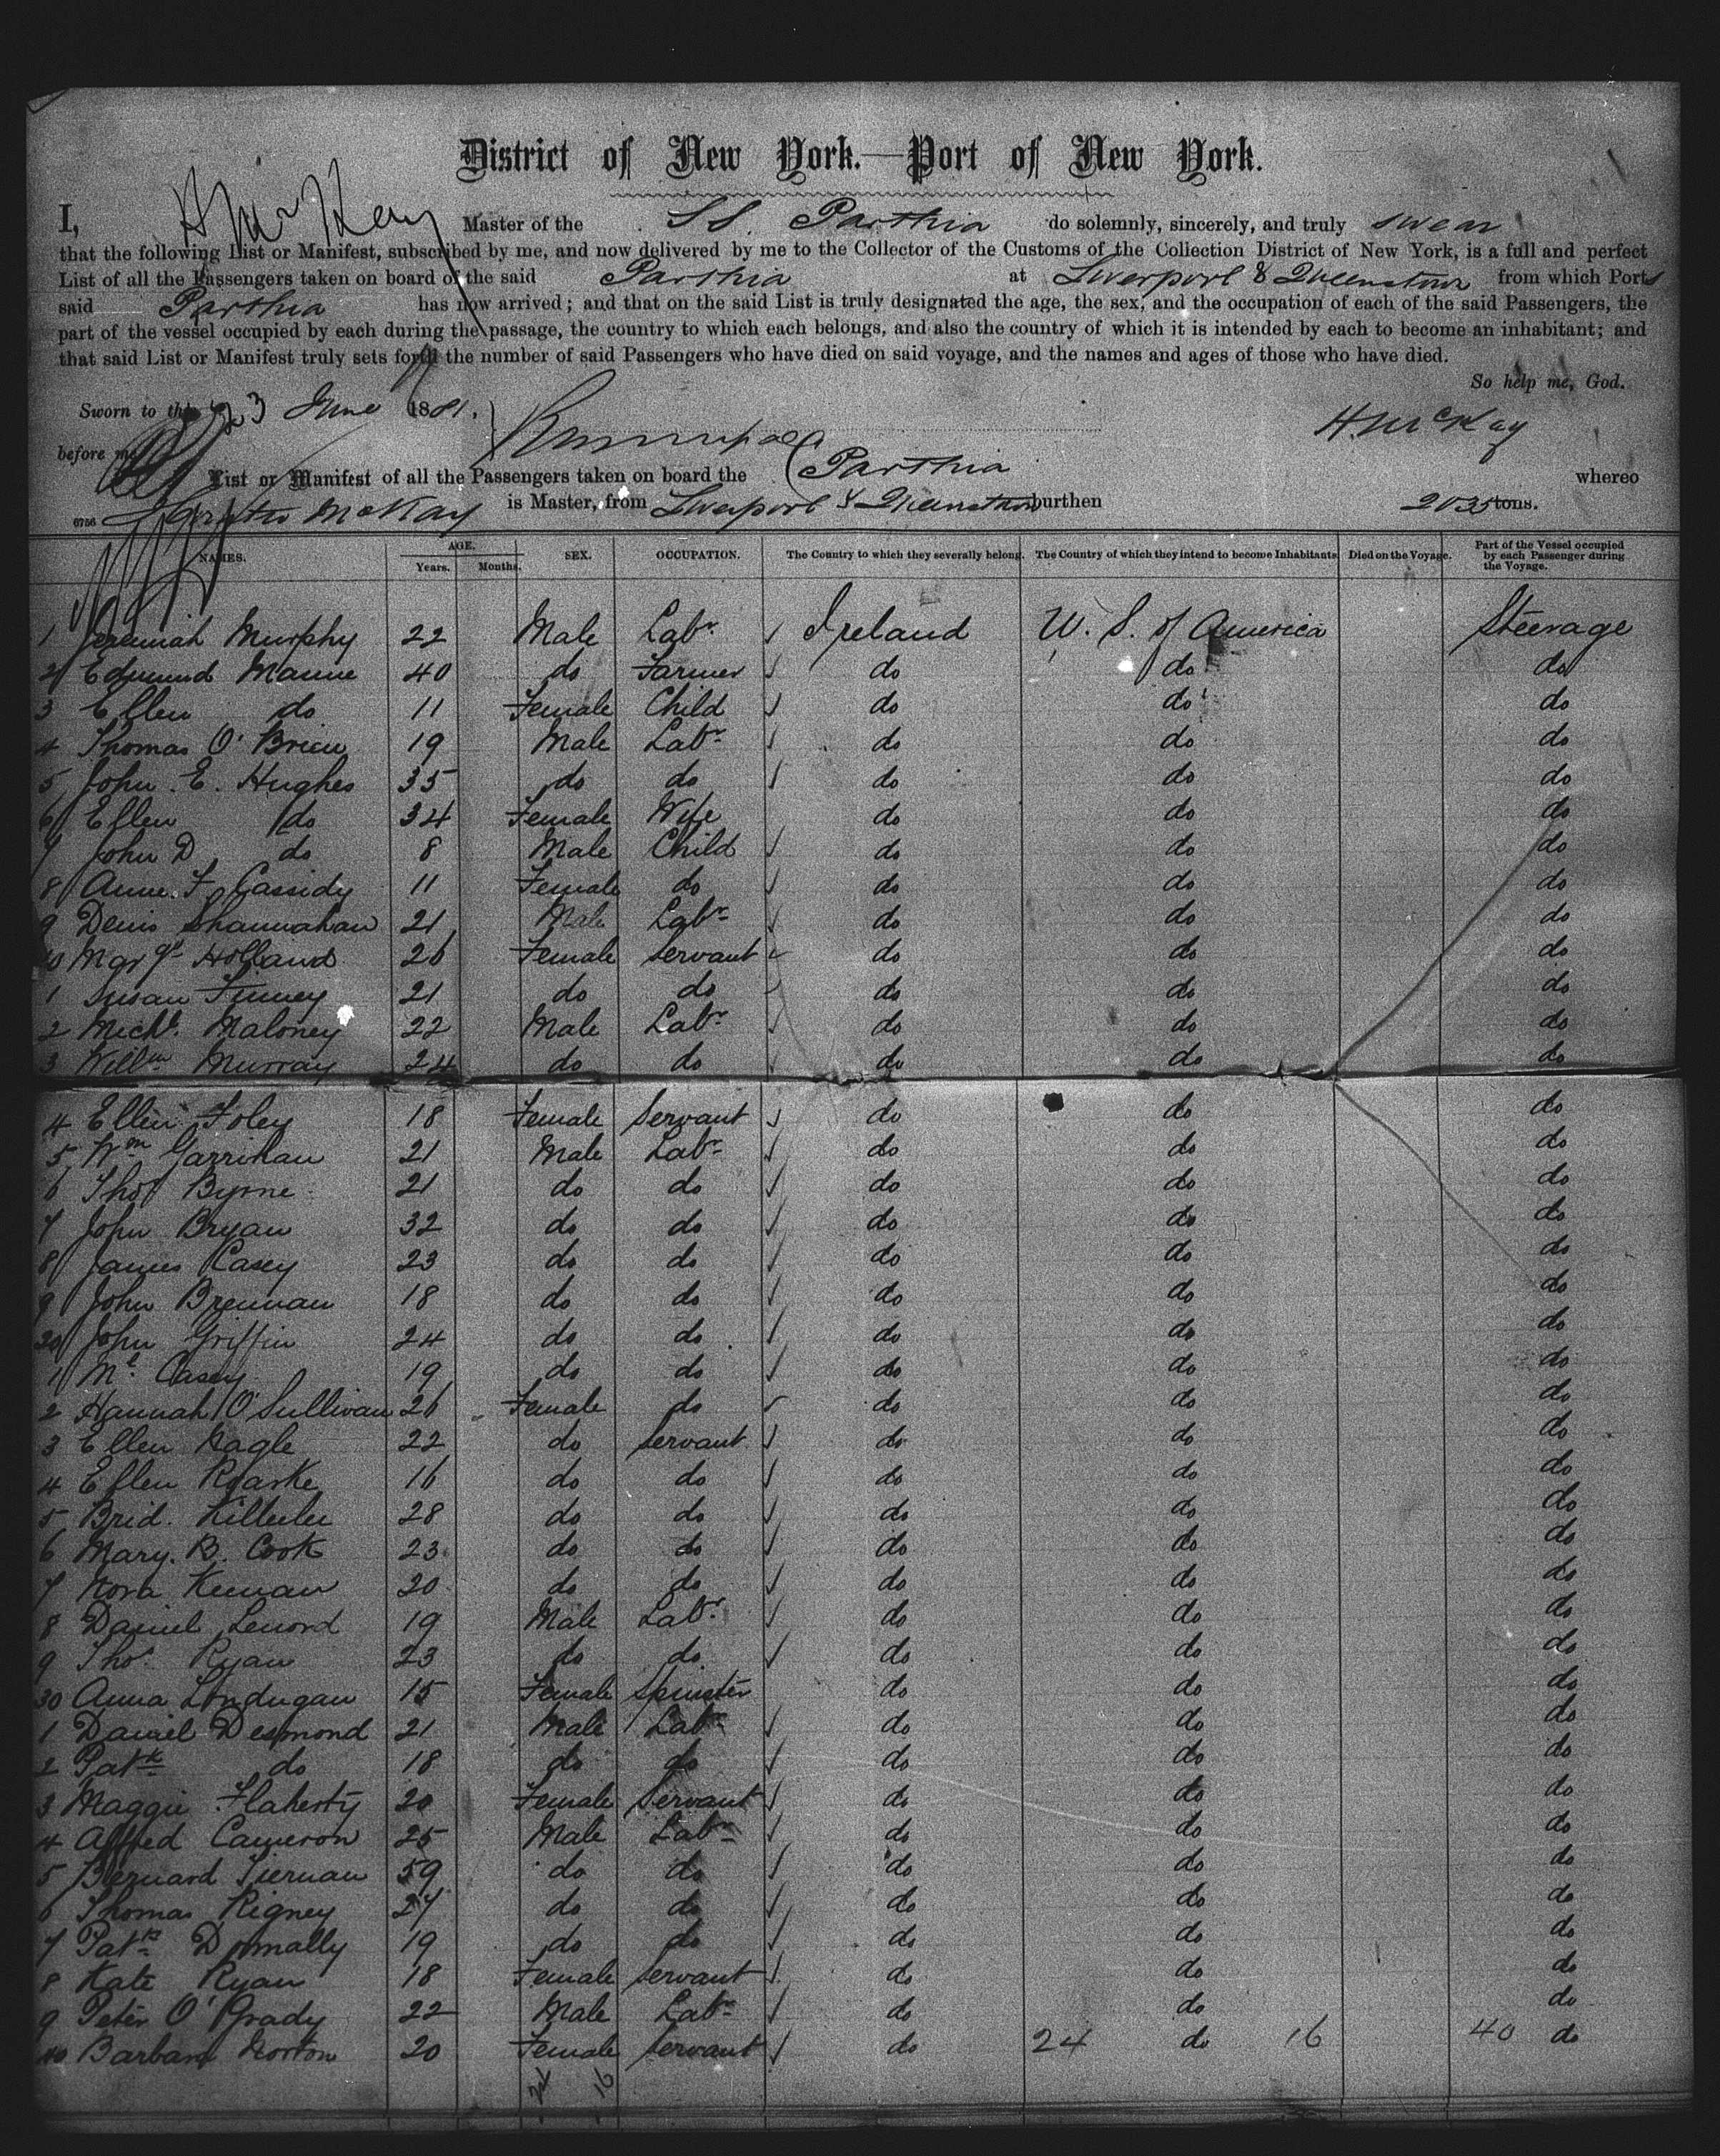 District of New York.—Port of New York.
I, H McKay Master of the S.S. Parthia do solemnly, sincerely, and truly swear
that the following List or Manifest, subscribed by me, and now delivered by me to the Collector of the Customs of the Collection District of New York, is a full and perfect
List of all the Passengers taken on board of the said Parthia at Liverpool & Queenstown from which Ports
said Parthia has now arrived; and that on the said List is truly designated the age, the sex, and the occupation of each of the said Passengers, the
part of the vessel occupied by each during the passage, the country to which each belongs, and also the country of which it is intended by each to become an inhabitant; and
that said List or Manifest truly sets forth the number of said Passengers who have died on said voyage, and the names and ages of those who have died.
So help me, God.
Sworn to this 23 June 1881.
H. McKay
before me
List or Manifest of all the Passengers taken on board the Parthia whereo
6756 McKay is Master, from Liverpool & Queenstown burthen 2035 tons.
NAMES. AGE. Years. Months. SEX. OCCUPATION. The Country to which they severally belong. The Country of which they intend to become Inhabitants Died on the Voyage. Part of the Vessel occupied by each Passenger during the Voyage.
1 Jeremiah Murphy 22 Male Labr. Ireland U. S. of America Steerage
2 Edmund Manne 40 do Farmer do do do
3 Ellen do 11 Female Child do do do
4 Thomas O'Brien 19 Male Labr do do do
5 John. E. Hughes 35 do do do do do
6 Ellen do 34 Female Wife do do do
7 John D do 8 Male Child do do do
8 Anne. F. Cassidy 11 Female do do do do
9 Denis Shannahan 21 Male Labr do do do
10 Margt Holland 26 Female Servant do do do
1 Susan Finney 21 do do do do do
2 Michl. Maloney 22 Male Labr do do do
3 Willm Murray 24 do do do do do
4 Ellen Foley 18 Female Servant do do do
5 Wm Garrihan 21 Male Labr do do do
6 Thos Byrne 21 do do do do do
7 John Bryan 32 do do do do do
8 James Casey 23 do do do do do
9 John Brennan 18 do do do do do
20 John Griffin 24 do do do do do
1 Ml Casey 19 do do do do do
2 Hannah O'Sullivan 26 Female do do do do
3 Ellen Nagle 22 do Servant do do do
4 Ellen Roarke 16 do do do do do
5 Brid. Killeelee 28 do do do do do
6 Mary. B. Cook 23 do do do do do
7 Nora Keenan 20 do do do do do
8 Daniel Lenord 19 Male Labr do do do
9 Thos. Ryan 23 do do do do do
30 Anna Londugan 15 Female Spinster do do do
1 Daniel Desmond 21 Male Labr do do do
2 Patk do 18 do do do do do
3 Maggie Flaherty 20 Female Servant do do do
4 Alfred Cameron 25 Male Labr do do do
5 Bernard Tiernan 59 do do do do do
6 Thomas Rigney 27 do do do do do
7 Patk Donnally 19 do do do do do
8 Kate Ryan 18 Female Servant do do do
9 Peter O'Grady 22 Male Labr do do do
40 Barbara Norton 20 Female Servant do 24 do 16 40 do
24 16